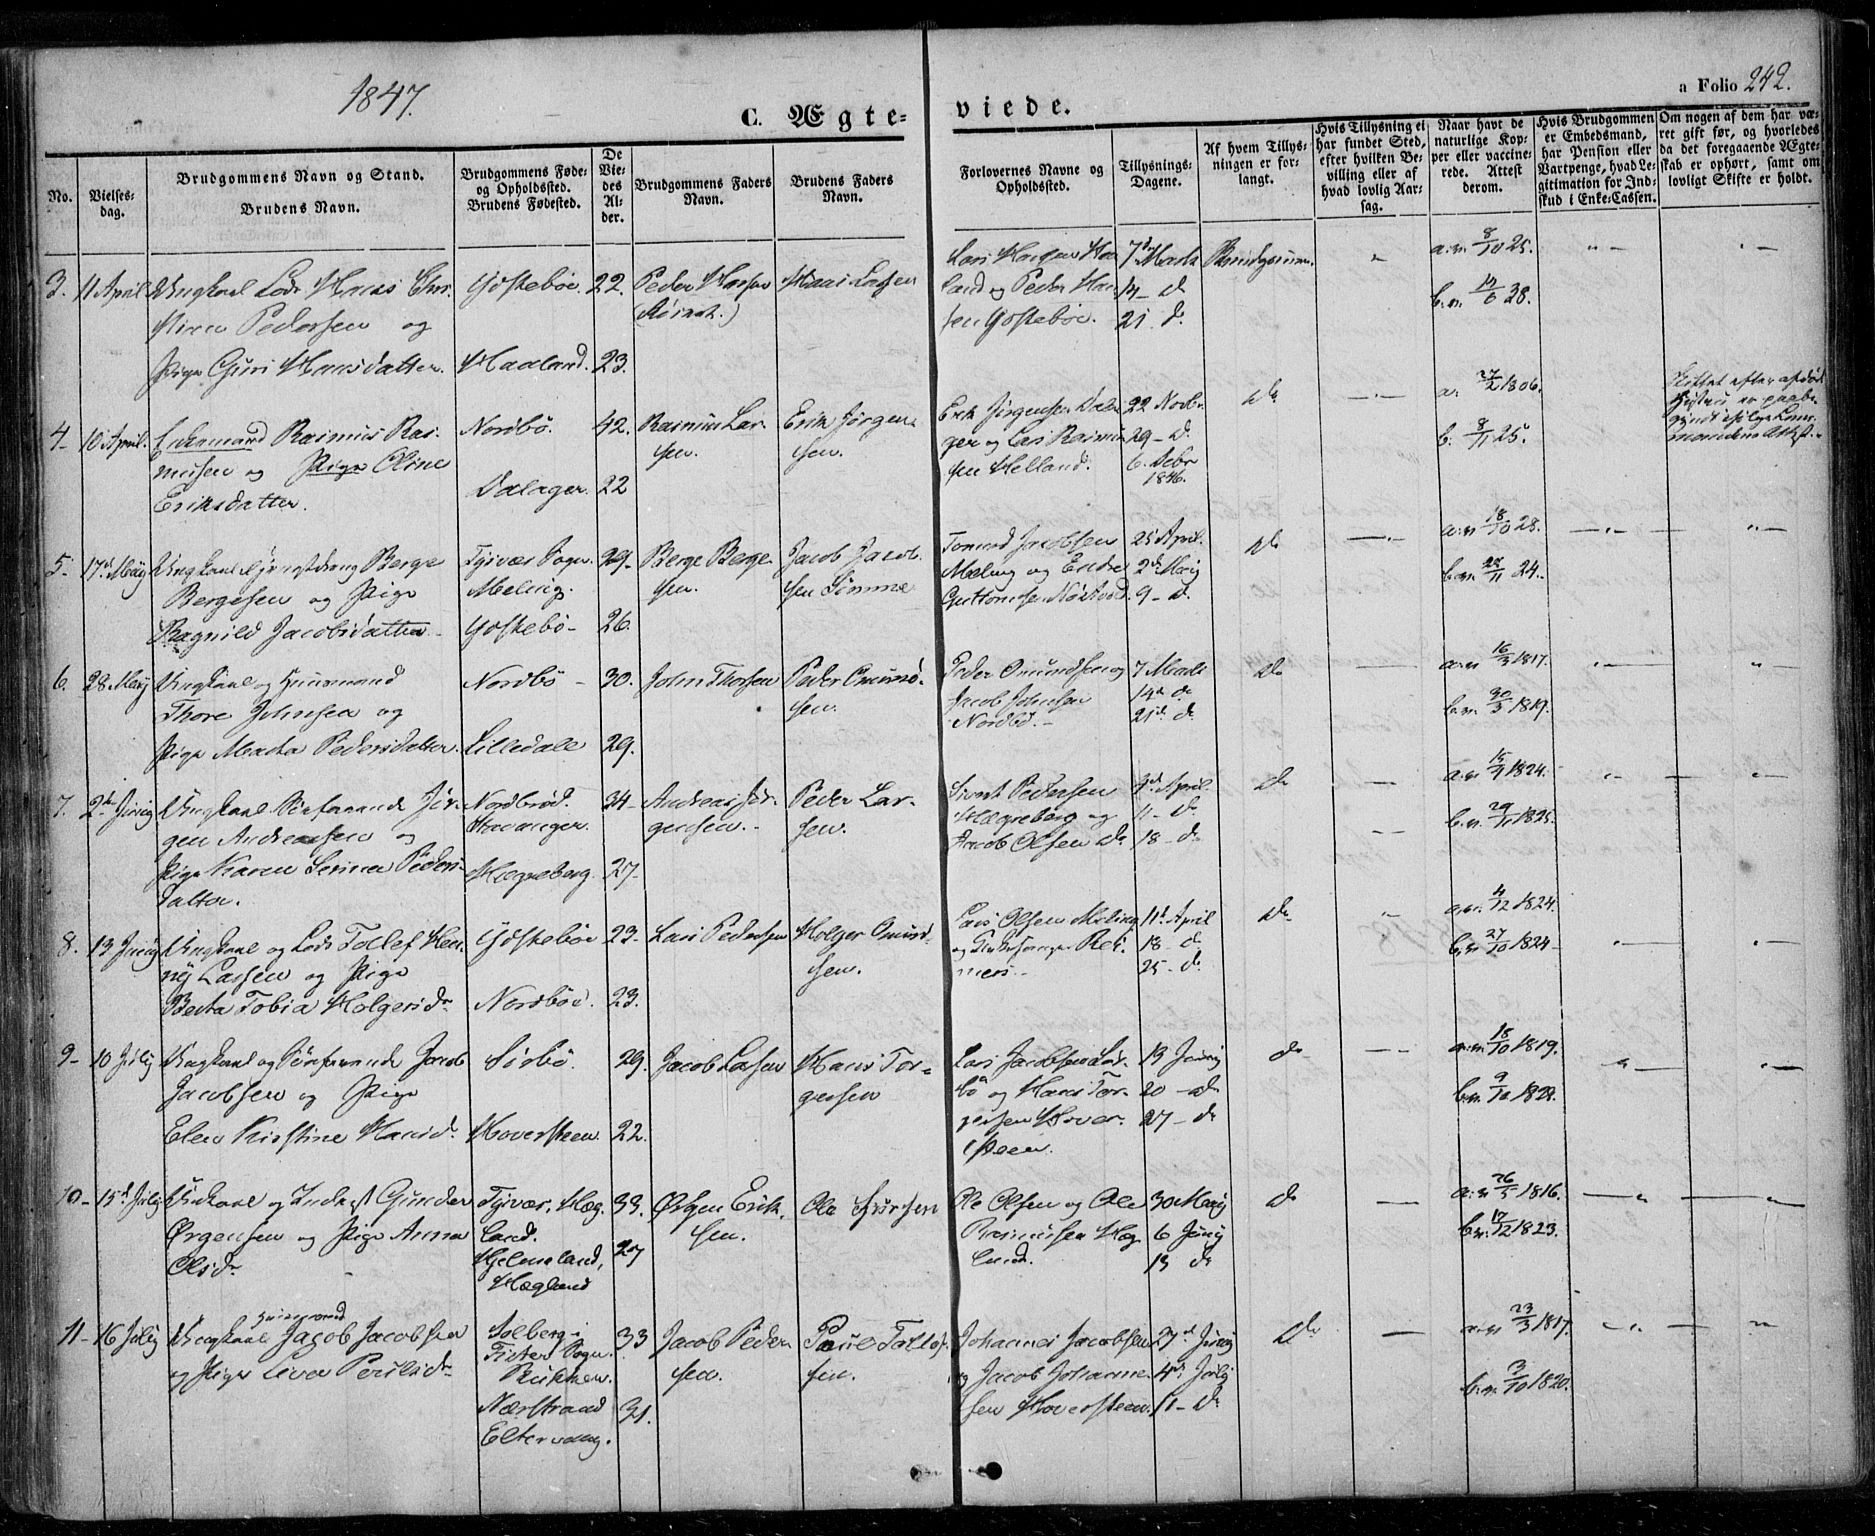 1847.
C. Ægte-
viede.
a Folio 242.
No.
Vielses-
dag.
Brudgommens Navn og Stand.
Brudens Navn.
Brudgommens Føde-
og Opholdssted.
Brudens Fødested.
De
Vie-
des
Al-
der.
Brudgommens Faders
Navn.
Brudens Faders
Navn.
Forlovernes Navne og
Opholdssted.
Tillysnings-
Dagene.
Af hvem Tillys-
ningen er for-
langt.
Hvis Tillysning ei
har fundet Sted,
efter hvilken Be-
villing eller af
hvad lovlig Aar-
sag.
Naar havt de
naturlige Kop-
per eller vaccine-
rede. Attest
derom.
Hvis Brudgommen
er Embedsmand,
har Pension eller
Vartpenge, hvad Le-
gitimation for Ind-
skud i Enke-Cassen.
Om nogen af dem har væ-
ret gift før, og hvorledes
da det foregaaende Ægte-
skab er ophørt, samt om
lovligt Skifte er holdt.
3. 11 April Ungkarl Lods Hans Chri-
stian Pedersen og
Pige Guri Hansdatter.
Gostebøe. 22.
Haaland. 23.
Peder Hansen
Hans Larsen
Lars Hansen Haa-
land og Peder Han-
sen Gostebøe.
7de Marts
14 - d
21. d.
Brudgommen.
a. v. 8/10 25.
b. v. 14/6 28.
4- 10 April. Enkemand Rasmus Ras-
musen og Pige Oline
Eriksdatter.
Nordbø. 42.
Dalager. 22
Rasmus Lar-
sen.
Erik Jørgen-
sen.
Erik Jørgensen Dala-
ger og Lars Rasmu-
sen Helland.
22 Novbr
29 - d.
6. Decbr
1846.
Do
a. 27/2 1806.
b. 8/11 25.
Skiftet efter afdød
Hustru er paabe-
gyndt ifølge Lens-
mandens Attest.
5- 17de Maij Ungkarl Gaardmand Berge
Bergesen og Pige
Ragnild Jacobsdatter
Tysvær Sogn. 29-
Meling.
Gostebø- 26.
Berge Berge-
sen.
Jacob Jacob-
sen Sømme
Tomed Jacobsen
Meling og Endre
Guttormsen Nostvod.
25 April.
2de Maij
9 - d.
Do
a. v. 18/10 28.
b. v. 28/11 24.
6. 28 Maij Ungkarl og Huusmand
Thore Johnsen og
Pige Marta Pedersdatter.
Nordbø - 30.
Lilledall 29.
John Thorsen
Peder Omund-
sen.
Peder Omundsen og
Jacob Johnsen
Nordbø.-
7 Marts
14de do
21de d.
Do
a. v. 16/3 1817.
b. v. 30/3 1819.
7. 2de Junij Ungkarl Søefarende Jør-
gen Andreasen og
Pige Karen Serine Peders-
datter.
Nordbrød. 34-
Stavanger.
Hægreberg. 27-
Andreas Jør-
gensen.-
Peder Lar-
sen.
Sivert Pedersen
Hægreberg og
Jacob Olsen Do
4de April.
11 - d.
18 - d.
Do
a. v. 15/9 1824.
b. v. 29/11 1825.
8. 13 Junij Ungkarl og Lods Tollef Hen-
rij Larsen og Pige
Berta Tobia Holgersdr
Gostebøe 23-
Nordbøe. 23.
Lars Pedersen
Holger Omund-
sen.
Lars Olsen Meling
og Kirkesanger Rei-
mers.-
11te April
18 - d.
25 - d.
Do
a. v. 4/12 1824.
b. v. 27/10 1824-
9- 10 Julij Ungkarl og Søefarende Jacob
Jacobsen og Pige
Elen Kirstine Hansdr
Sørbø. 29.
Hoversteen. 22.
Jacob Larsen
Hans Tor-
gersen
Lars Jacobsen Sør-
bø og Hans Tor-
gersen Hover-
steen.
13 Junij
20 - d
27 - d
do
a. v. 18/10 1819.
b. v. 9/10 1828.
10- 15de Julij Ungkarl og Inderst Gunder
Ørgensen og Pige Anna
Olsdr
Tysvær. Hæg- 33.
land.
Hjelmeland, 27
Hægland
Ørgen Erik-
sen.
Ole Jursen
Ole Olsen og Ole
Rasmusen Hæg-
land.
30 Maij
6 Junij
13 do
do
a. v. 26/5 1816.
b. v. 17/12 1823.
11- 16 Julij Ungkarl Huusmand Jacob Jacobsen
og Pige Siva Poulsdr
Solberg- 33
Tister Sogn.
Nærstrand 31.
Eltervaag.
Jacob Peder-
sen.
Poul Tollef-
sen.
Johannes Jacobsen
og Jacob Johanne-
sen Hoversteen.
27de Junij
4de Julij
11 - d
Do
a. v. 23/3 1817.
b. v. 3/10 1820.